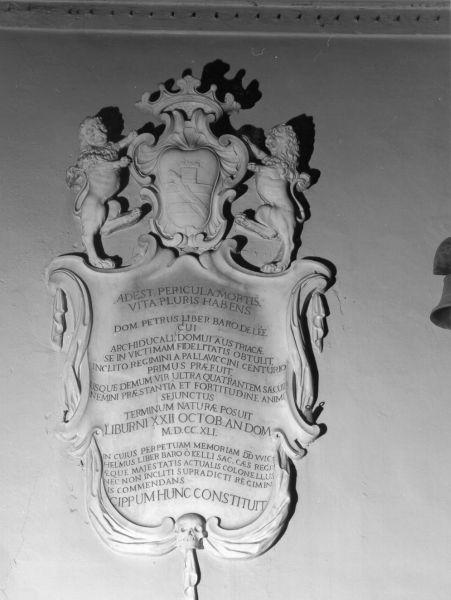 ADEST PERICULA MORTIS
VITA PLURIS HABENS
DOM. PETRUS LIBER BARO DE LÉE
CUI
ARCHIDUCALI DOMUI AUSTRIACÆ
SE IN VICTIMAM FIDELITATIS OBTULIT
INCLITO REGIMINI A PALLAVICINI CENTURIO
PRIMUS PRÆFUIT
ISQUE DEMUM VIR ULTRA QUATRANTEM SÆCULI
NEMINI PRÆSTANTIA ET FORTITUDINE ANIMI
SEJUNCTUS
TERMINUM NATURÆ POSUIT
LIBURNI XXII OCTOB. AN DOM.
M.D.CC.XLI.
IN CUIUS PERPETUAM MEMORIAM DD
HELMUS LIBER BARO Ò KELLI SAC. CÆS REGI
ÆQUE MAJESTATIS ACTUALIS COLONELLUS
NEC NON INCLITI SUPRADICTI REGIMIN
IS COMMENDANS
CIPPUM HUNC CONSTITUIT